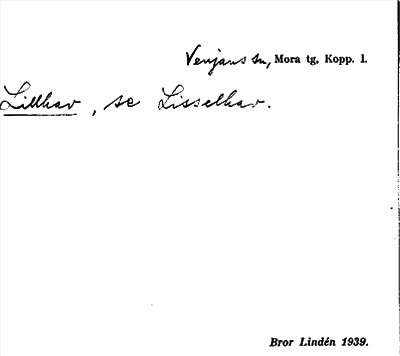 Venjans sn, Mora tg, Kopp. l.
Lillhav, se Lisselhav.
Bror Lindén 1939.